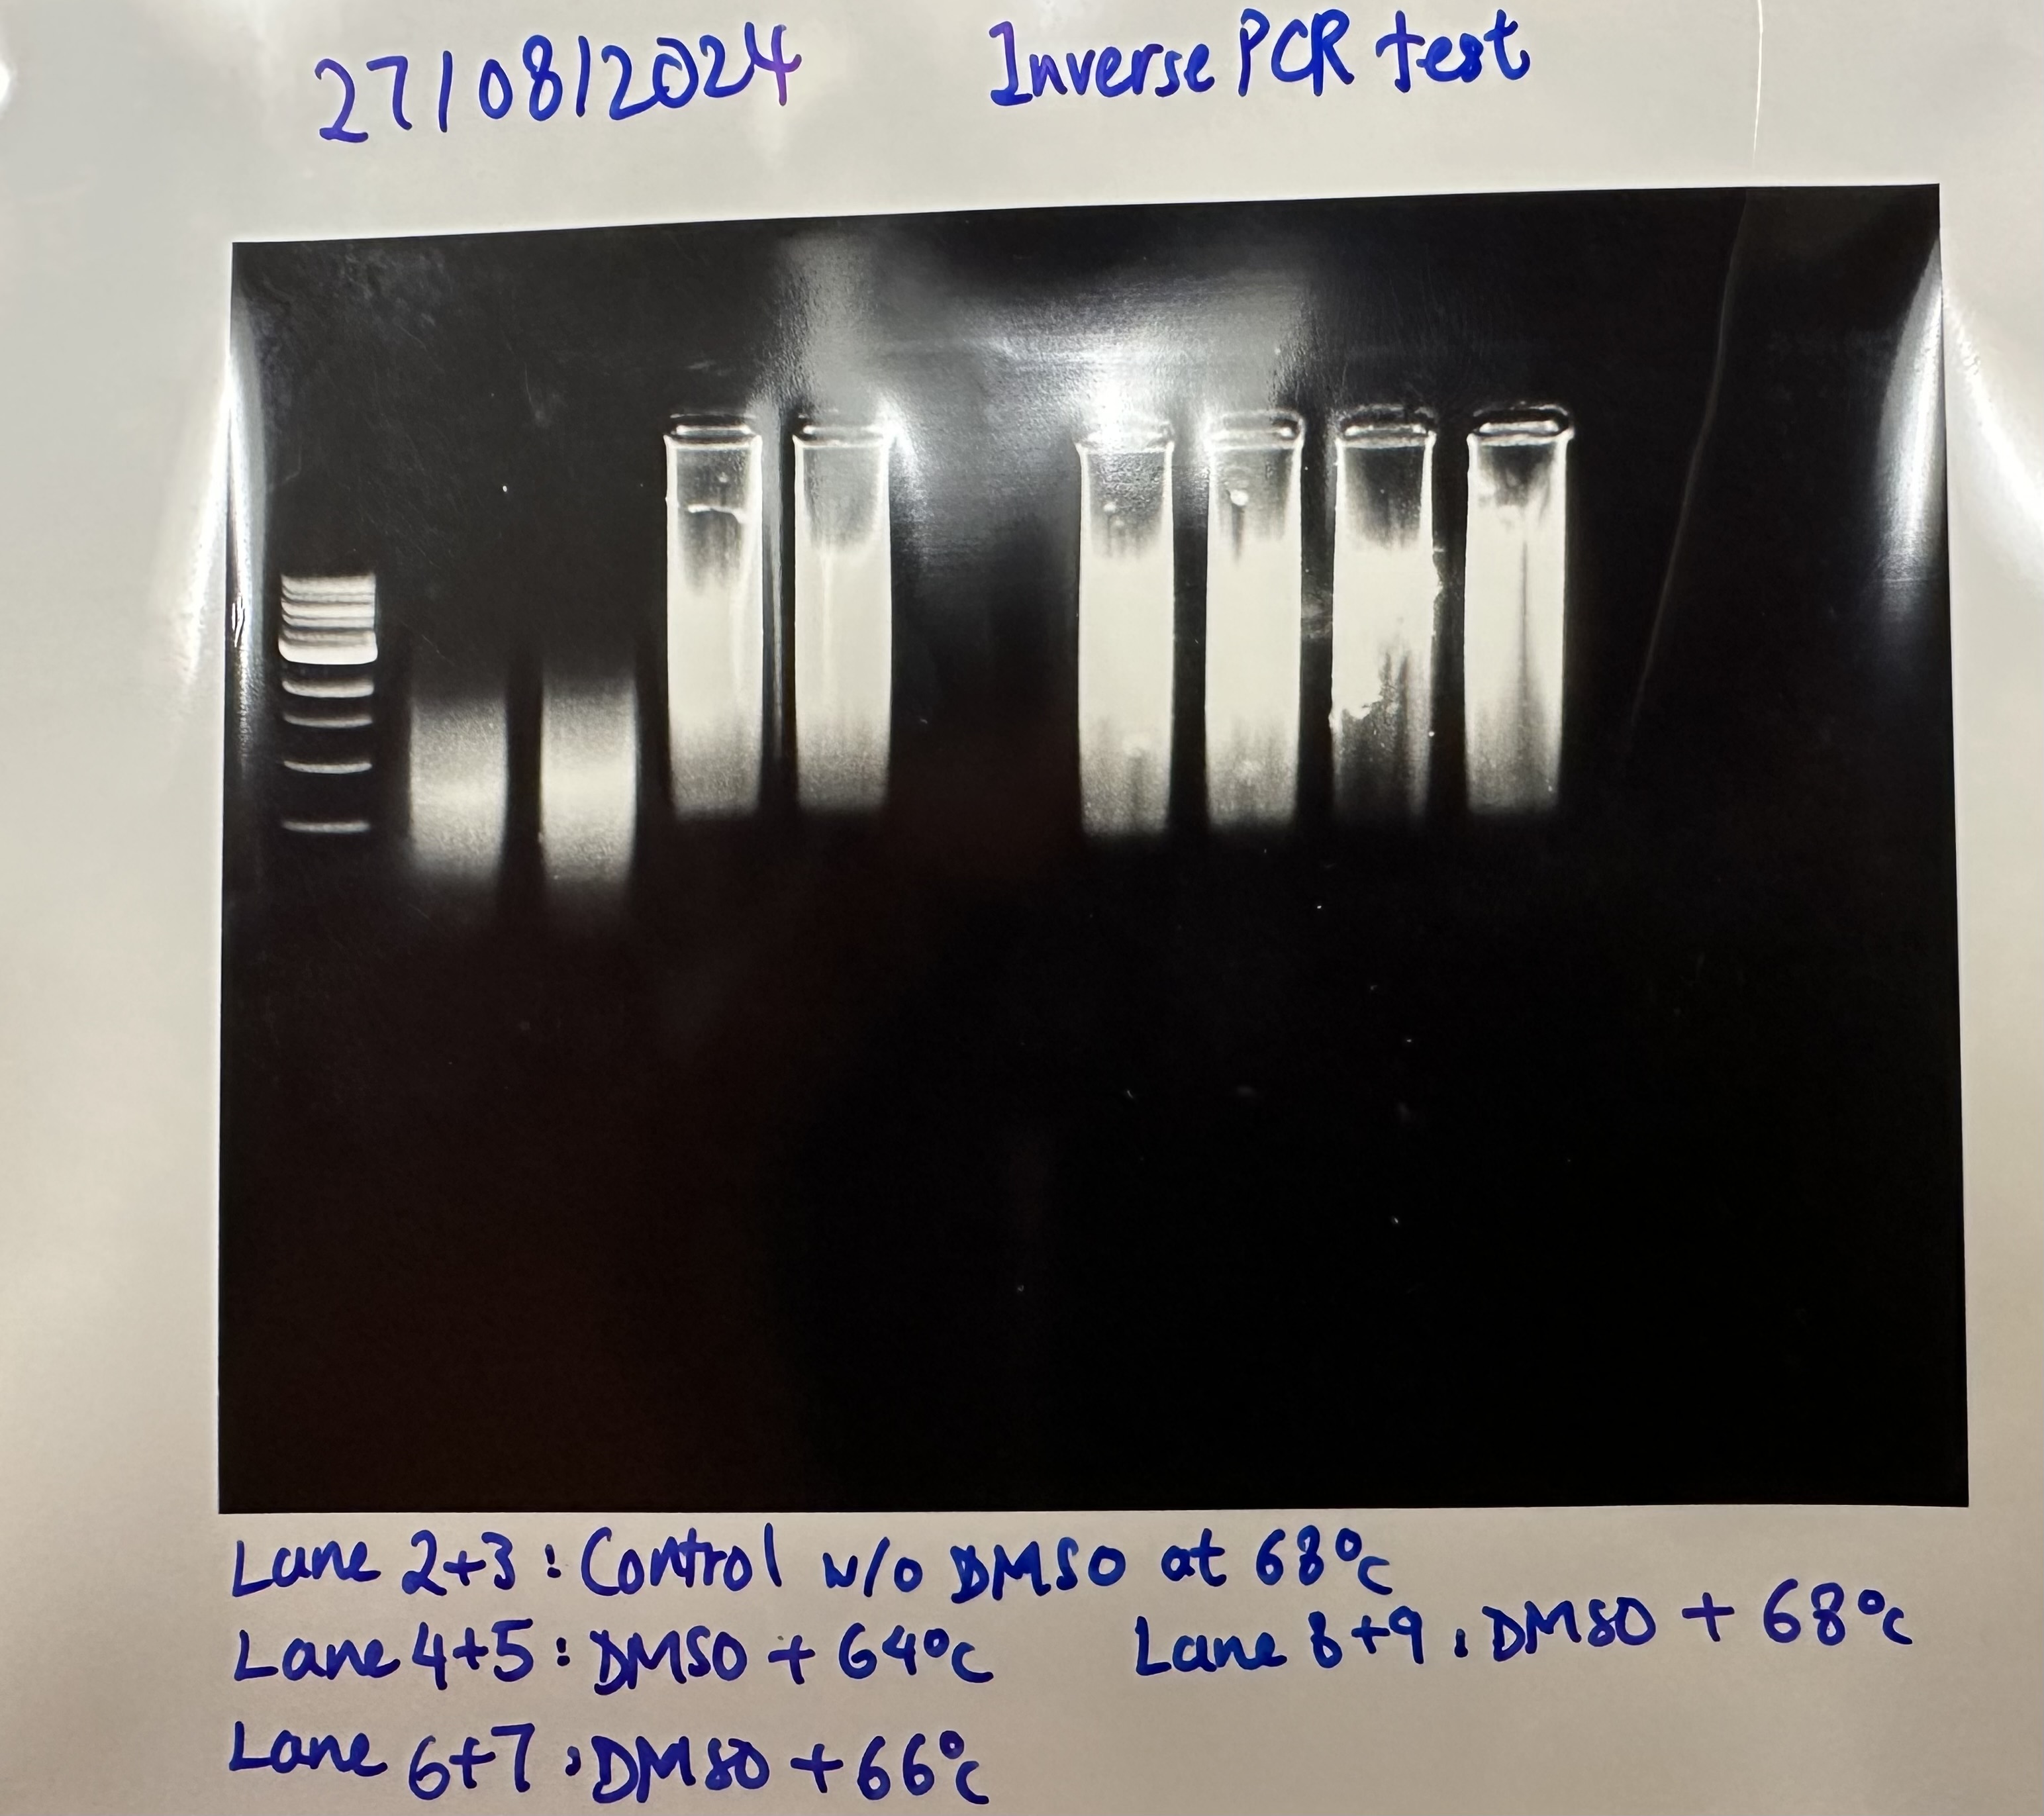 27/08/2024 Inverse PCR test
Lane 2+3 : Control w/o DMSO at 68°C
Lane 4+5 : DMSO + 64°C
Lane 8+9 : DMSO + 68°C
Lane 6+7 : DMSO + 66°C